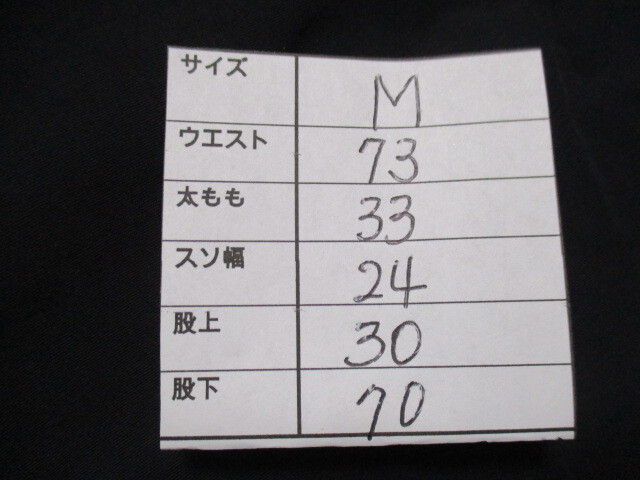 サイズ M
ウエスト 73
太もも 33
スソ幅 24
股上 30
股下 70